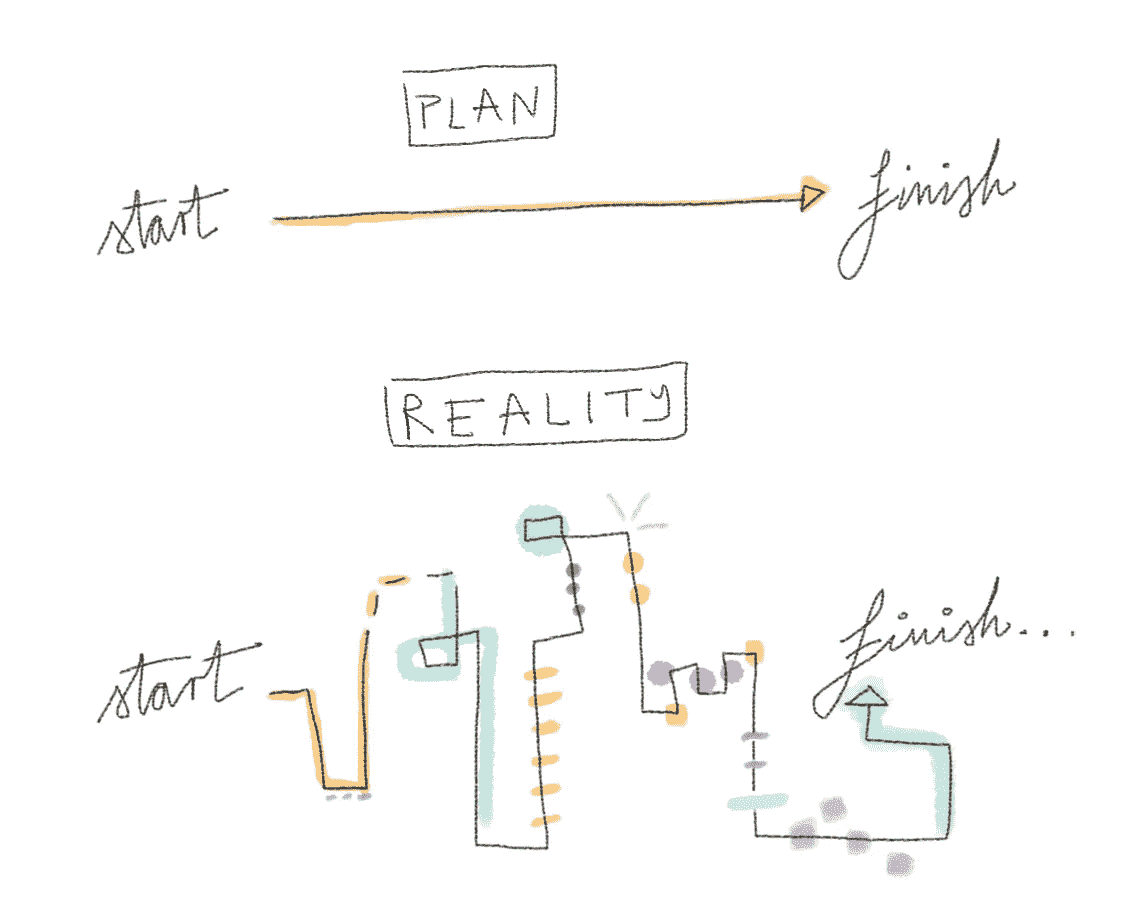 PLAN
start finish
REALITY
start finish...